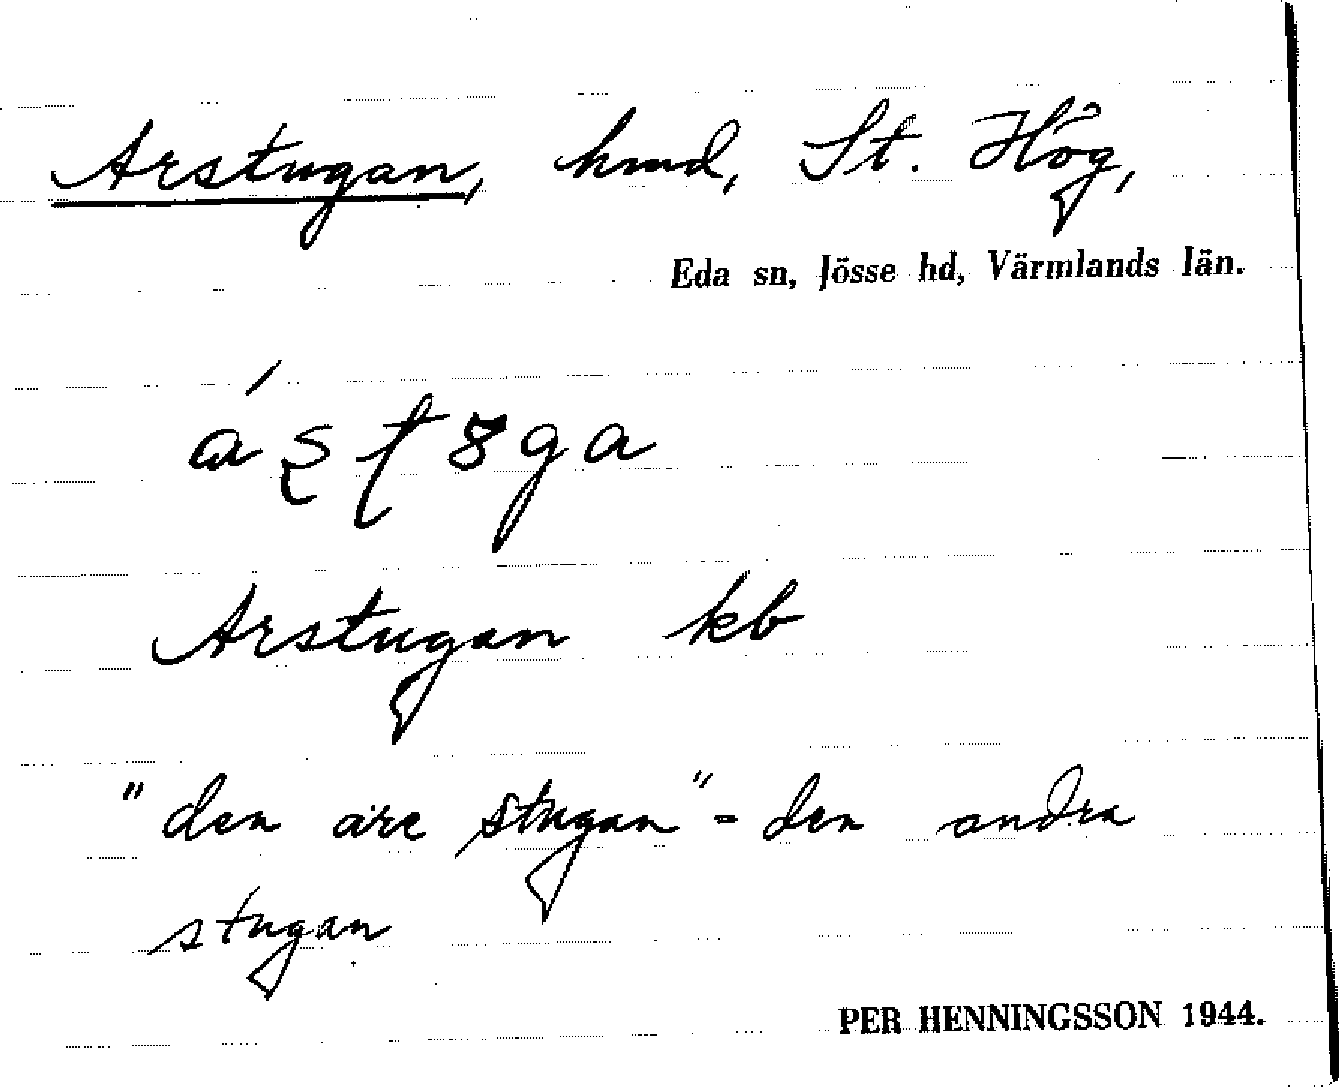 Arstugan, hmd, St. Hög,
Eda sn, Jösse hd, Värmlands län.
Arstugan kb
"den äre stugan" = den andra
stugan
PER HENNINGSSON 1944.